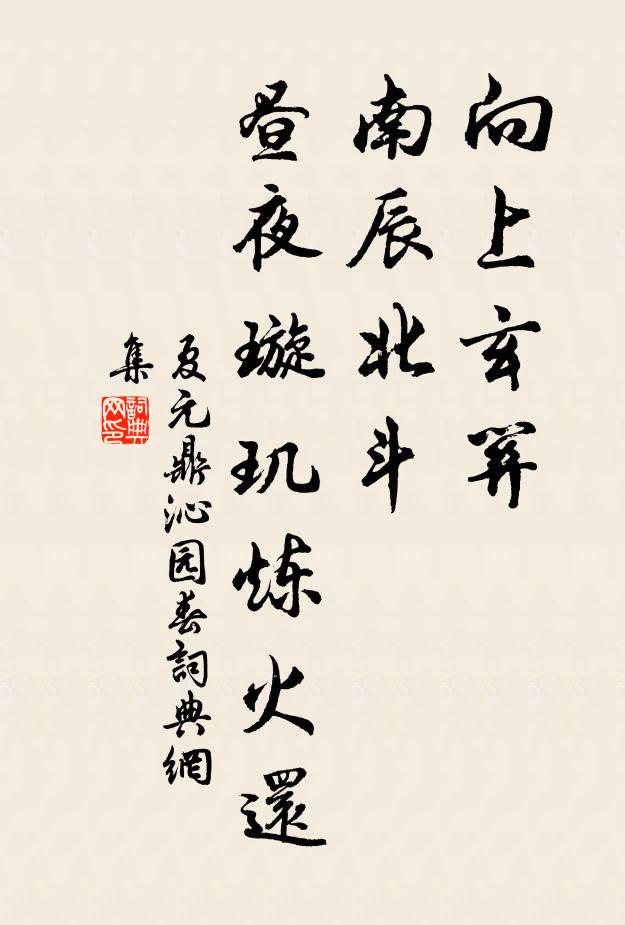 向上玄關
南辰北斗
昼夜璇玑炼火還
夏元鼎沁园春詞典網
集
詞典
网印